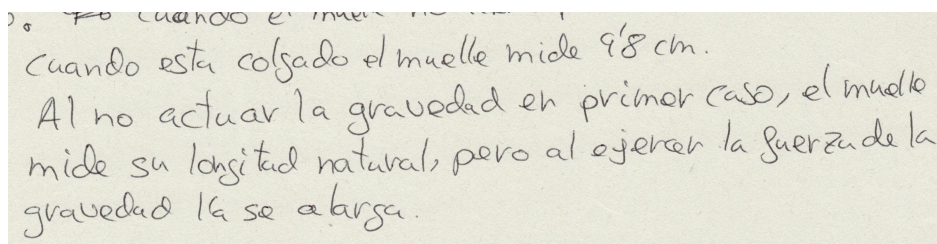 cuando e
Cuando esta colgado el muelle mide 9'8 cm.
Al no actuar la gravedad en primer caso, el muelle
mide su longitud natural, pero al ejercer la fuerza de la
gravedad se alarga.